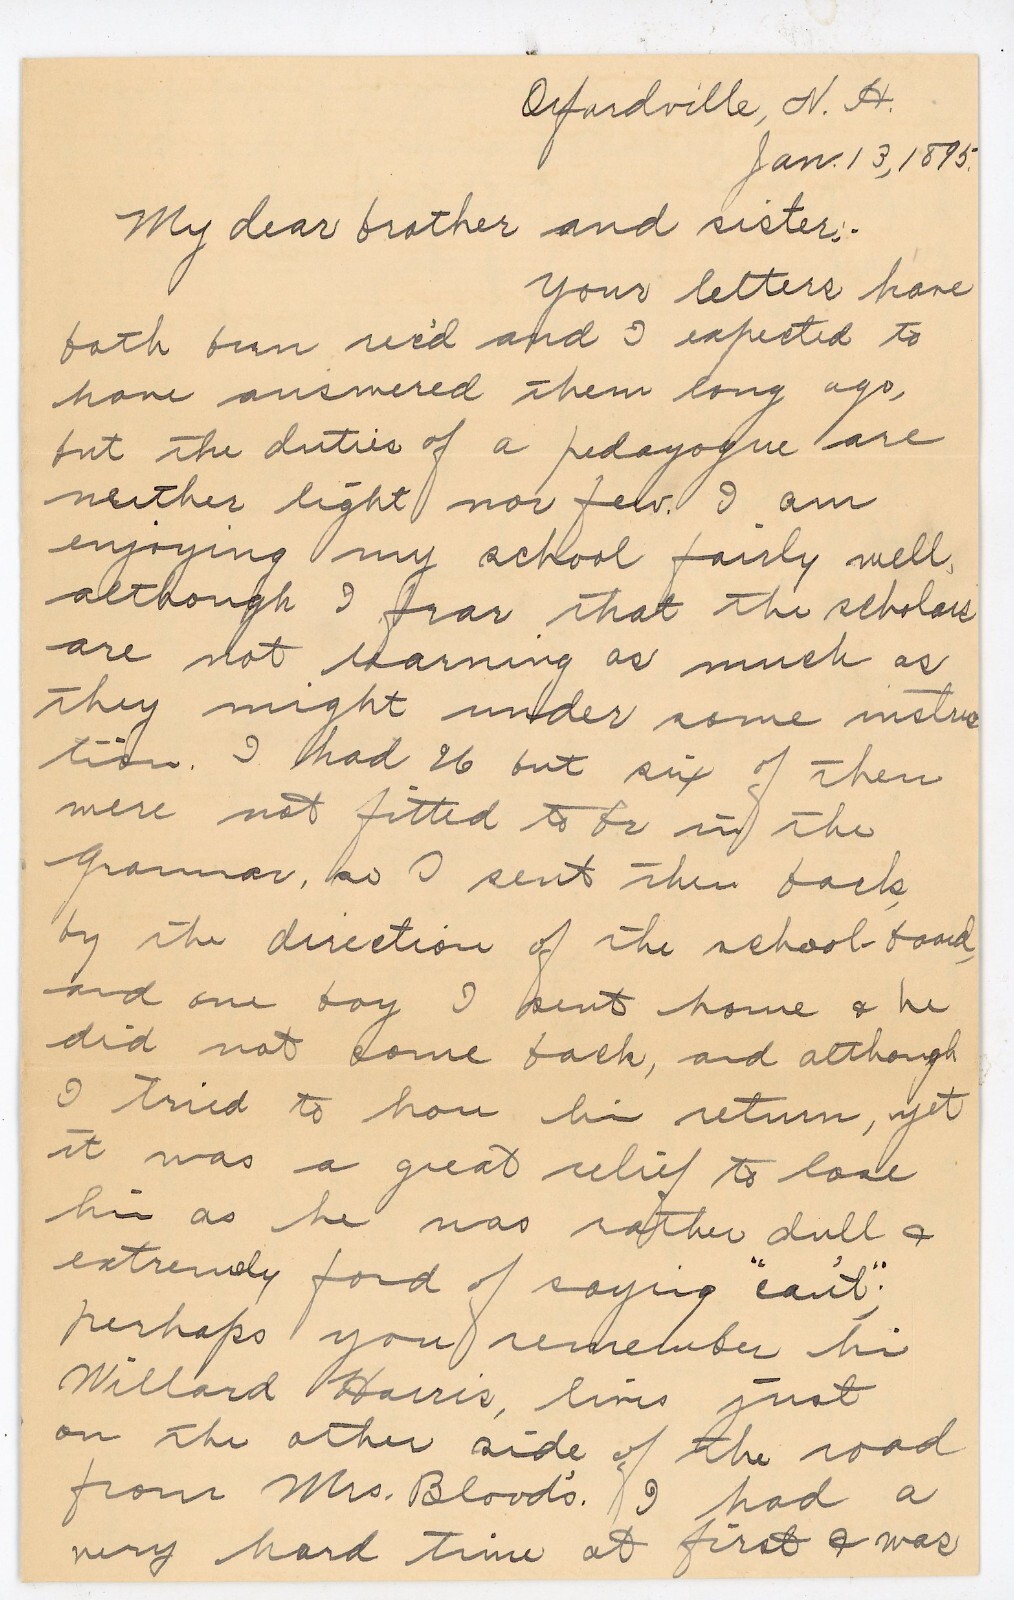 Orfordville, N. H.
Jan. 13, 1895.
My dear brother and sister:-
Your letters have
both been rec'd and I expected to
have answered them long ago,
but the duties of a pedagogue are
neither light nor few. I am
enjoying my school fairly well,
although I fear that the scholars
are not learning as much as
they might under some instruc
tion. I had 26 but six of them
were not fitted to be in the
Grammar, so I sent them back,
by the direction of the school-board,
and one boy I sent home & he
did not come back, and although
I tried to have him return, yet
it was a great relief to lose
him as he was rather dull &
extremely fond of saying "can't";
perhaps you remember him
Willard Harris, lives just
on the other side of the road
from Mrs. Blood's. I had a
very hard time at first & was